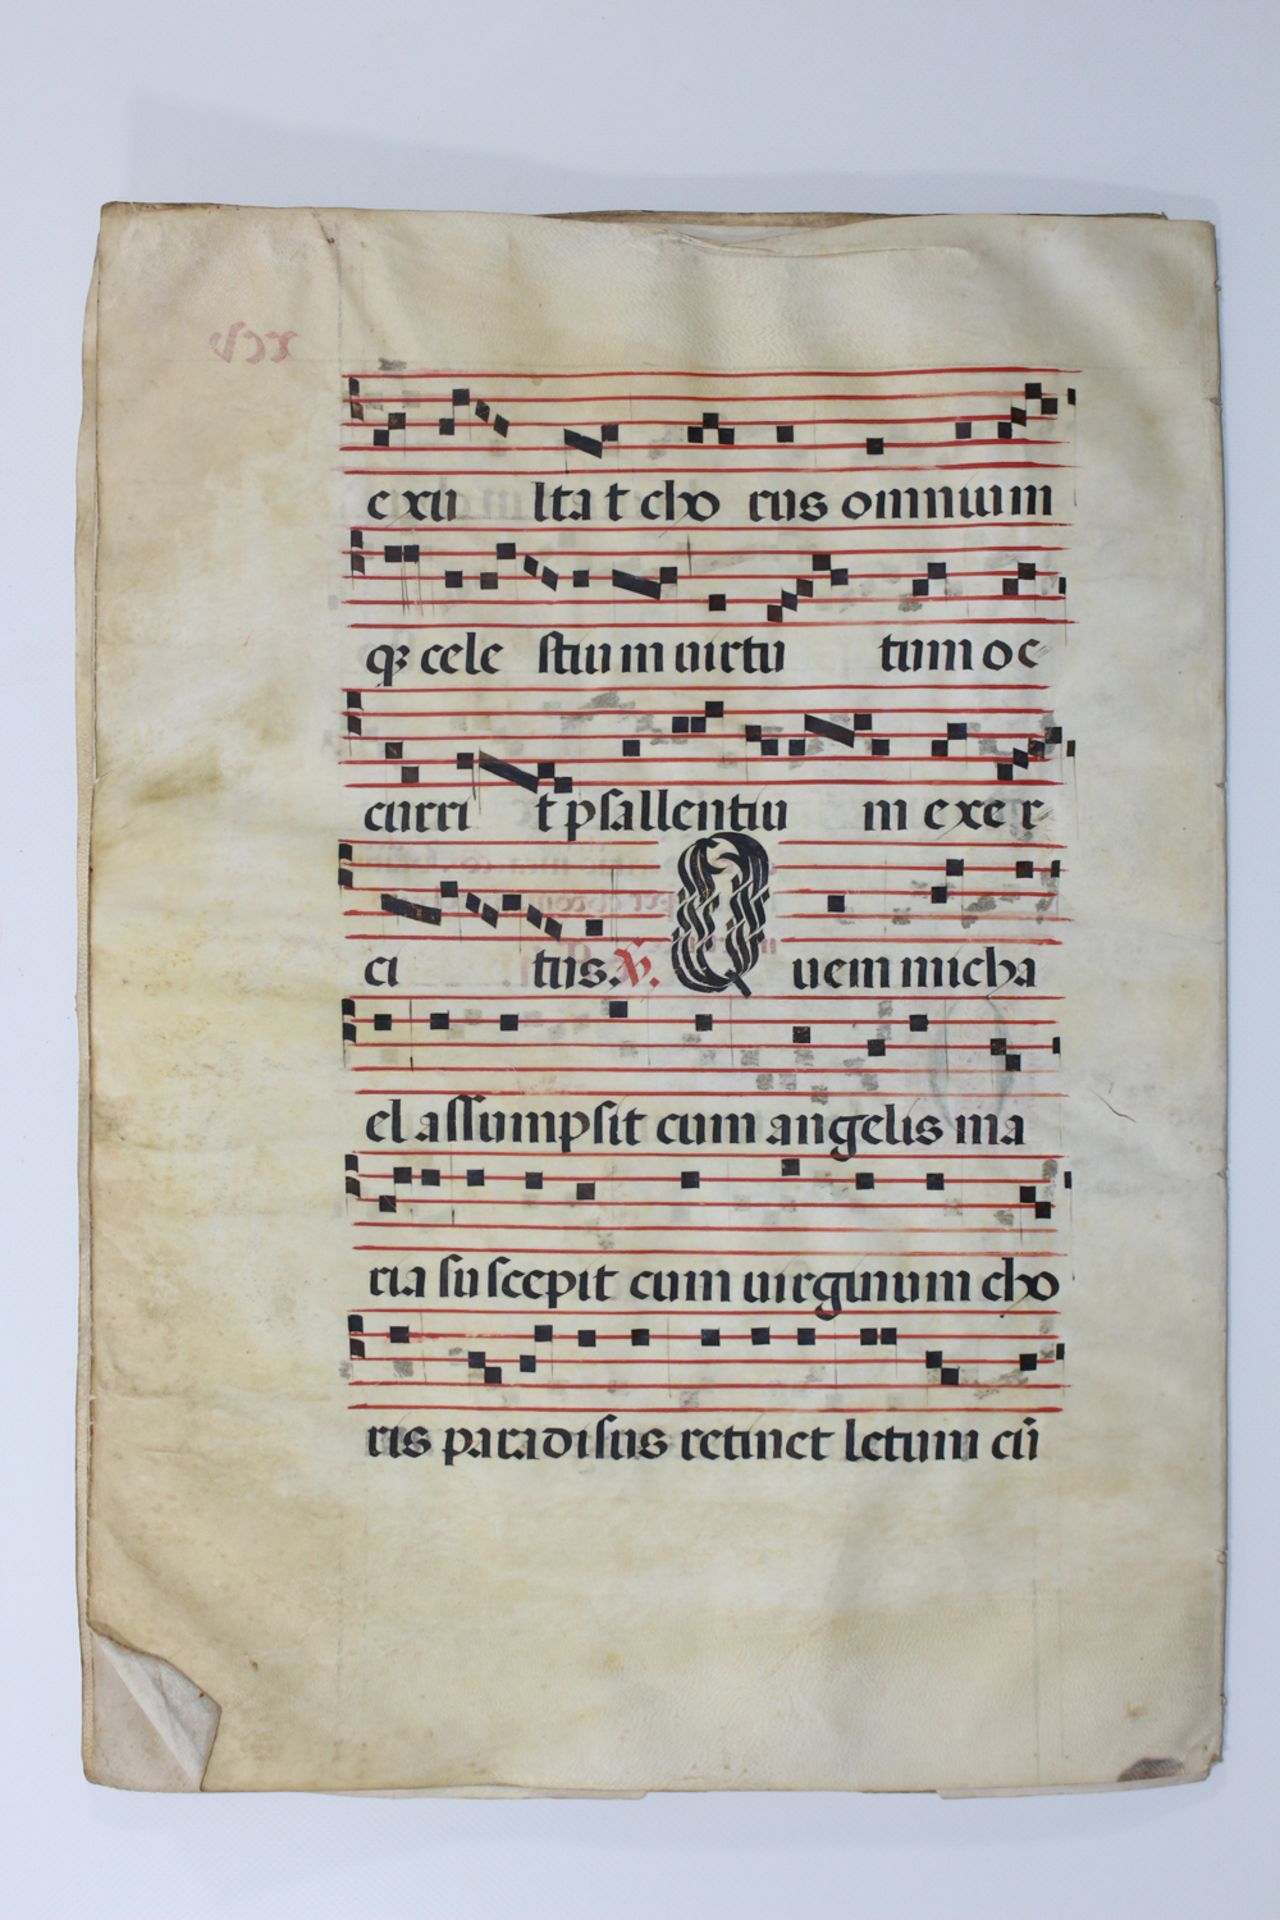 exu lta t cho rus omnium
qꝫ cele stiu m uirtu tum oc
curri t psallentiu m exer
ci tus. ℣. Quem micha
el assumpsit cum angelis ma
ria suscepit cum uirginum cho
ris paradisus retinet letum cū